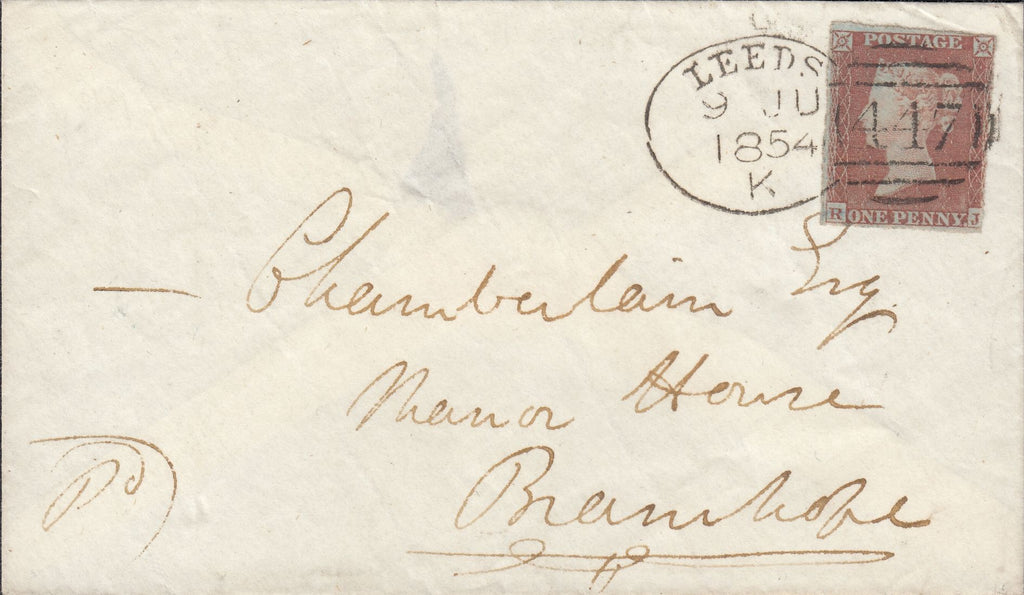 LEEDS
9 JU
1854
K
POSTAGE
447
R ONE PENNY. J
— Chamberlain Esq
Manor House
Bramhope
Pd